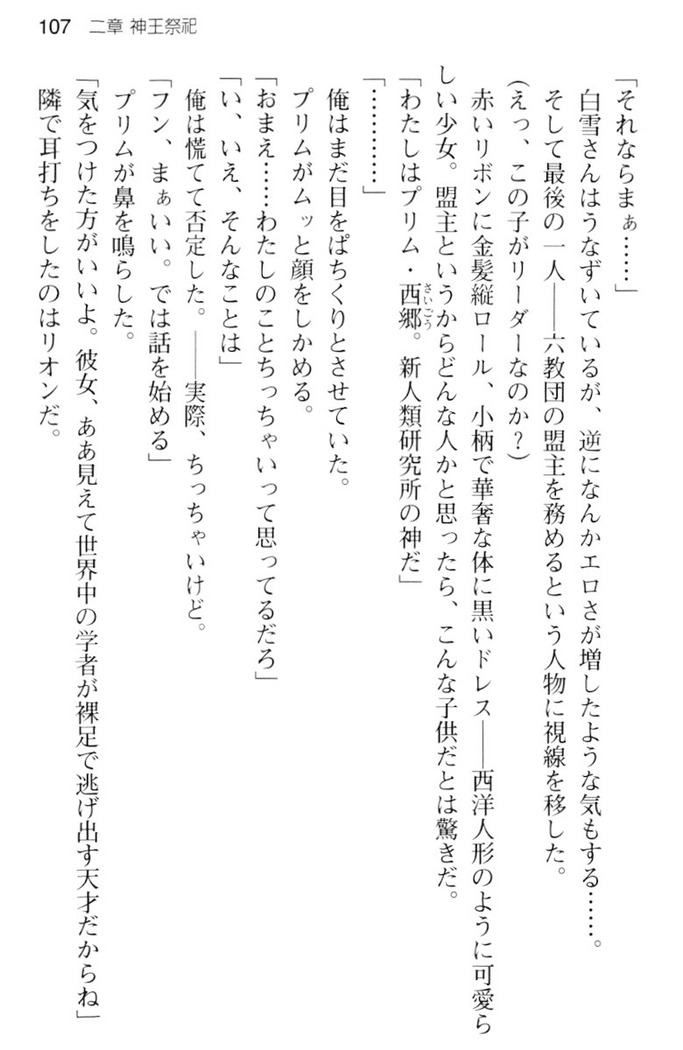 107 二章 神王祭祀
「それならまぁ……」
白雪さんはうなずいているが、逆になんかエロさが増したような気もする……。
そして最後の一人――六教団の盟主を務めるという人物に視線を移した。
(えっ、この子がリーダーなのか?)
赤いリボンに金髪縦ロール、小柄で華奢な体に黒いドレス――西洋人形のように可愛ら
しい少女。盟主というからどんな人かと思ったら、こんな子供だとは驚きだ。
「わたしはプリム・西郷。新人類研究所の神だ」
さいごう
「…………」
俺はまだ目をぱちくりとさせていた。
プリムがムッと顔をしかめる。
「おまえ……わたしのことちっちゃいって思ってるだろ」
「い、いえ、そんなことは」
俺は慌てて否定した。――実際、ちっちゃいけど。
「フン、まぁいい。では話を始める」
プリムが鼻を鳴らした。
「気をつけた方がいいよ。彼女、ああ見えて世界中の学者が裸足で逃げ出す天才だからね」
隣で耳打ちをしたのはリオンだ。